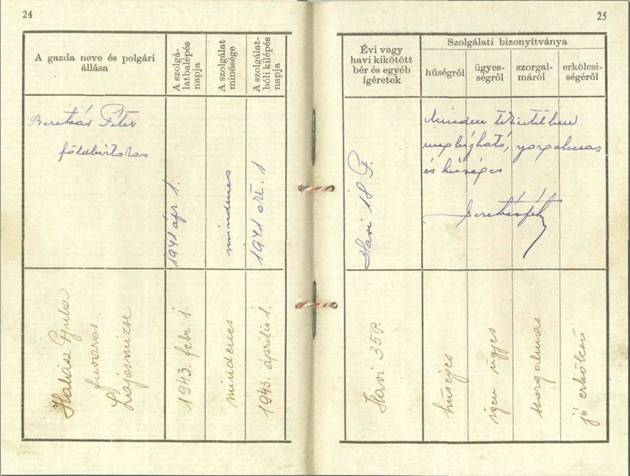 24
A gazda neve és polgári
állása
A szolgá-
latbalépés
napja
A szolgálat
minősége
A szolgálat-
ból kilépés
napja
földbirtokos
1941 ápr 1.
mindenes
1941 okt. 1
Halász Gyula
fuvaros
Lajosmizse
1943. febr. 1.
mindenes
1943. április 1.
25
Évi vagy
havi kikötött
bér és egyéb
ígéretek
Szolgálati bizonyítványa
hűségről
ügyes-
ségről
szorgal-
máról
erkölcsi-
ségéről
Havi 18 P.
Minden tekintetben
megbízható, szorgalmas
és hűséges
Havi 35 P.
hűséges
igen ügyes
szorgalmas
jó erkölcsű